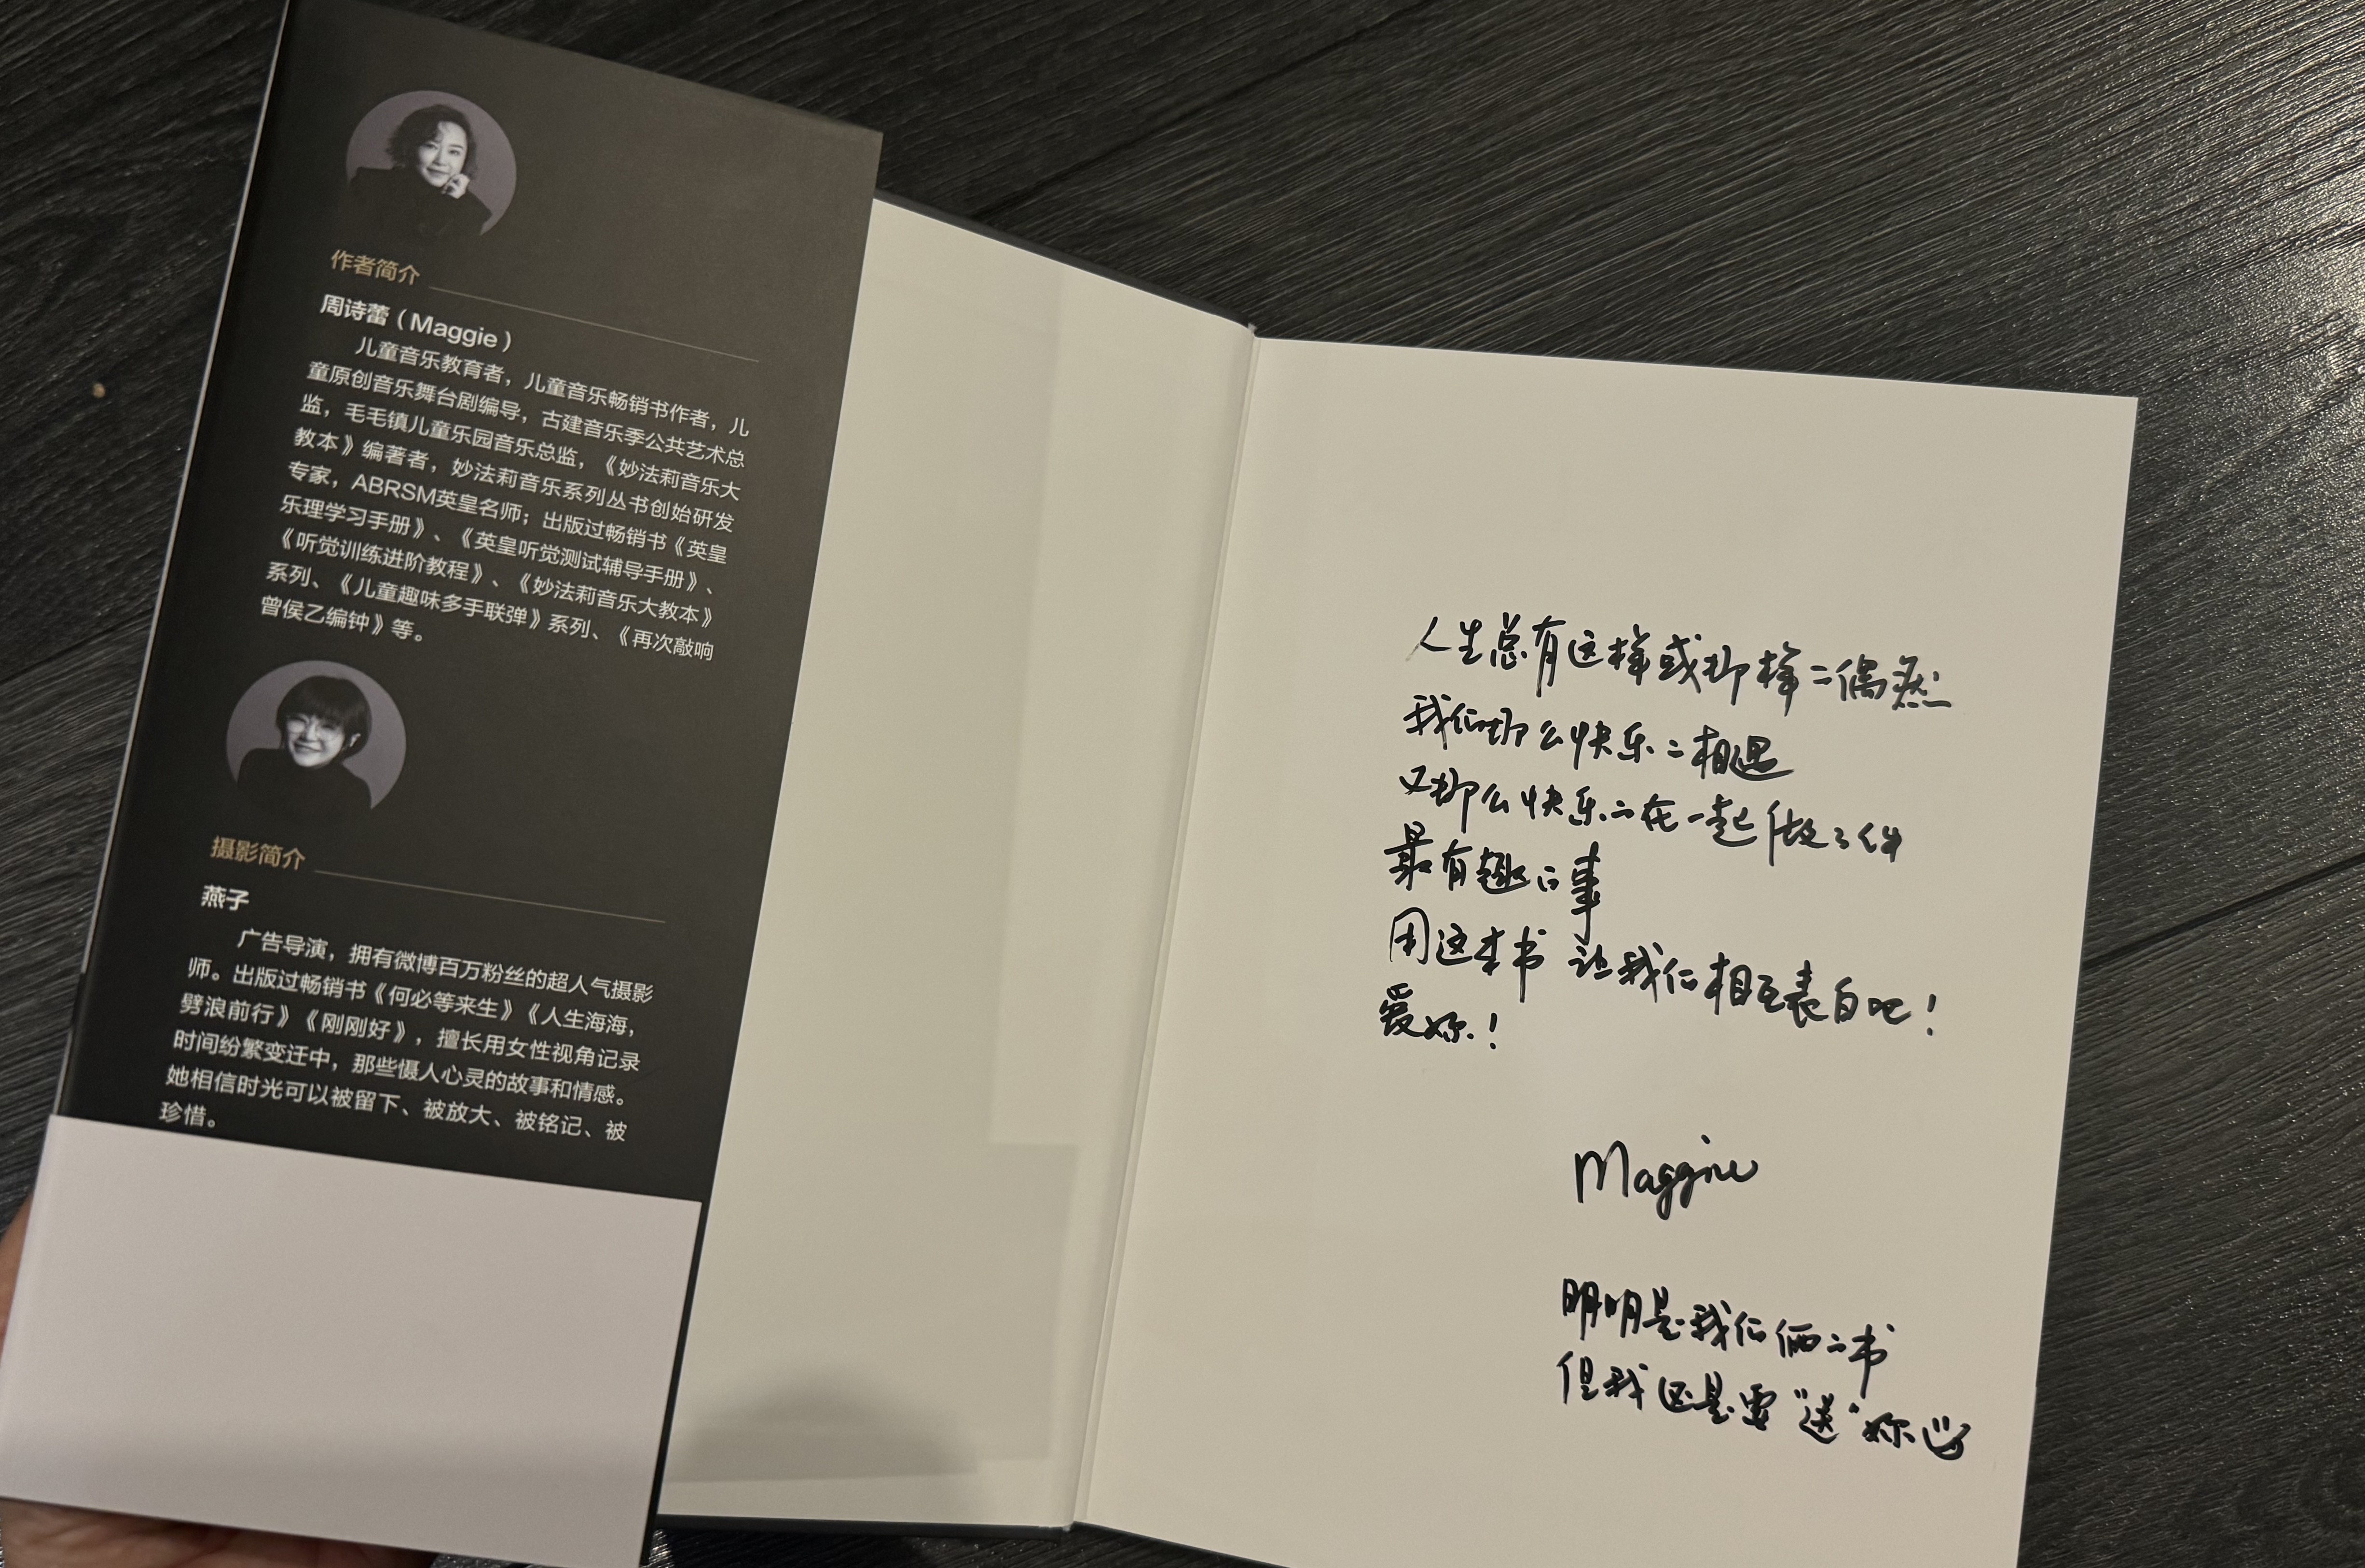 作者简介
周诗蕾（Maggie）
儿童音乐教育者，儿童音乐畅销书作者，儿
童原创音乐舞台剧编导，古建音乐季公共艺术总
监，毛毛镇儿童乐园音乐总监，《妙法莉音乐大
教本》编著者，妙法莉音乐系列丛书创始研发
专家，ABRSM英皇名师；出版过畅销书《英皇
乐理学习手册》、《英皇听觉测试辅导手册》、
《听觉训练进阶教程》、《妙法莉音乐大教本》
系列、《儿童趣味多手联弹》系列、《再次敲响
曾侯乙编钟》等。
摄影简介
燕子
广告导演，拥有微博百万粉丝的超人气摄影
师。出版过畅销书《何必等来生》《人生海海，
劈浪前行》《刚刚好》，擅长用女性视角记录
时间纷繁变迁中，那些慑人心灵的故事和情感。
她相信时光可以被留下、被放大、被铭记、被
珍惜。
人生总有这样或那样的偶然
我们那么快乐的相遇
又那么快乐的在一起做了件
最有趣的事
用这本书 让我们相互表白吧！
爱妳！
Maggie
明明是我们俩的书
但我还是要“送”妳